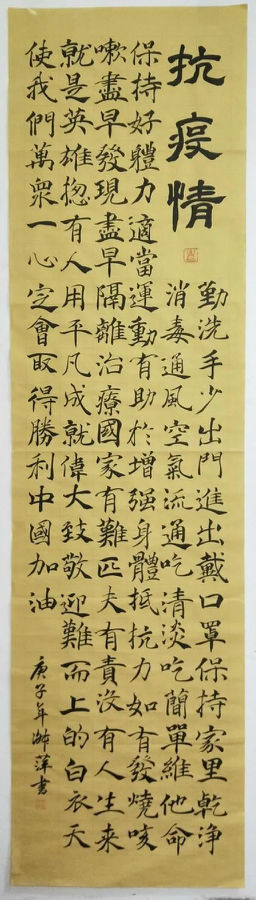 抗疫情
勤洗手少出門進出戴口罩保持家里乾淨
消毒通風空氣流通吃清淡吃簡單維他命
保持好體力適當運動有助於增强身體抵抗力如有發燒咳
嗽盡早發現盡早隔離治療國家有難匹夫有責沒有人生來
就是英雄揔有人用平凡成就偉大致敬迎難而上的白衣天
使我們萬衆一心定會取得勝利中國加油
庚子年 萍書